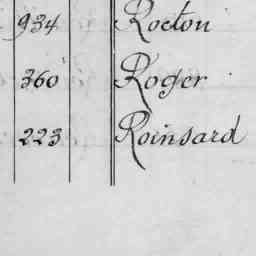 934 Rocton
360 Roger
223 Roinsard